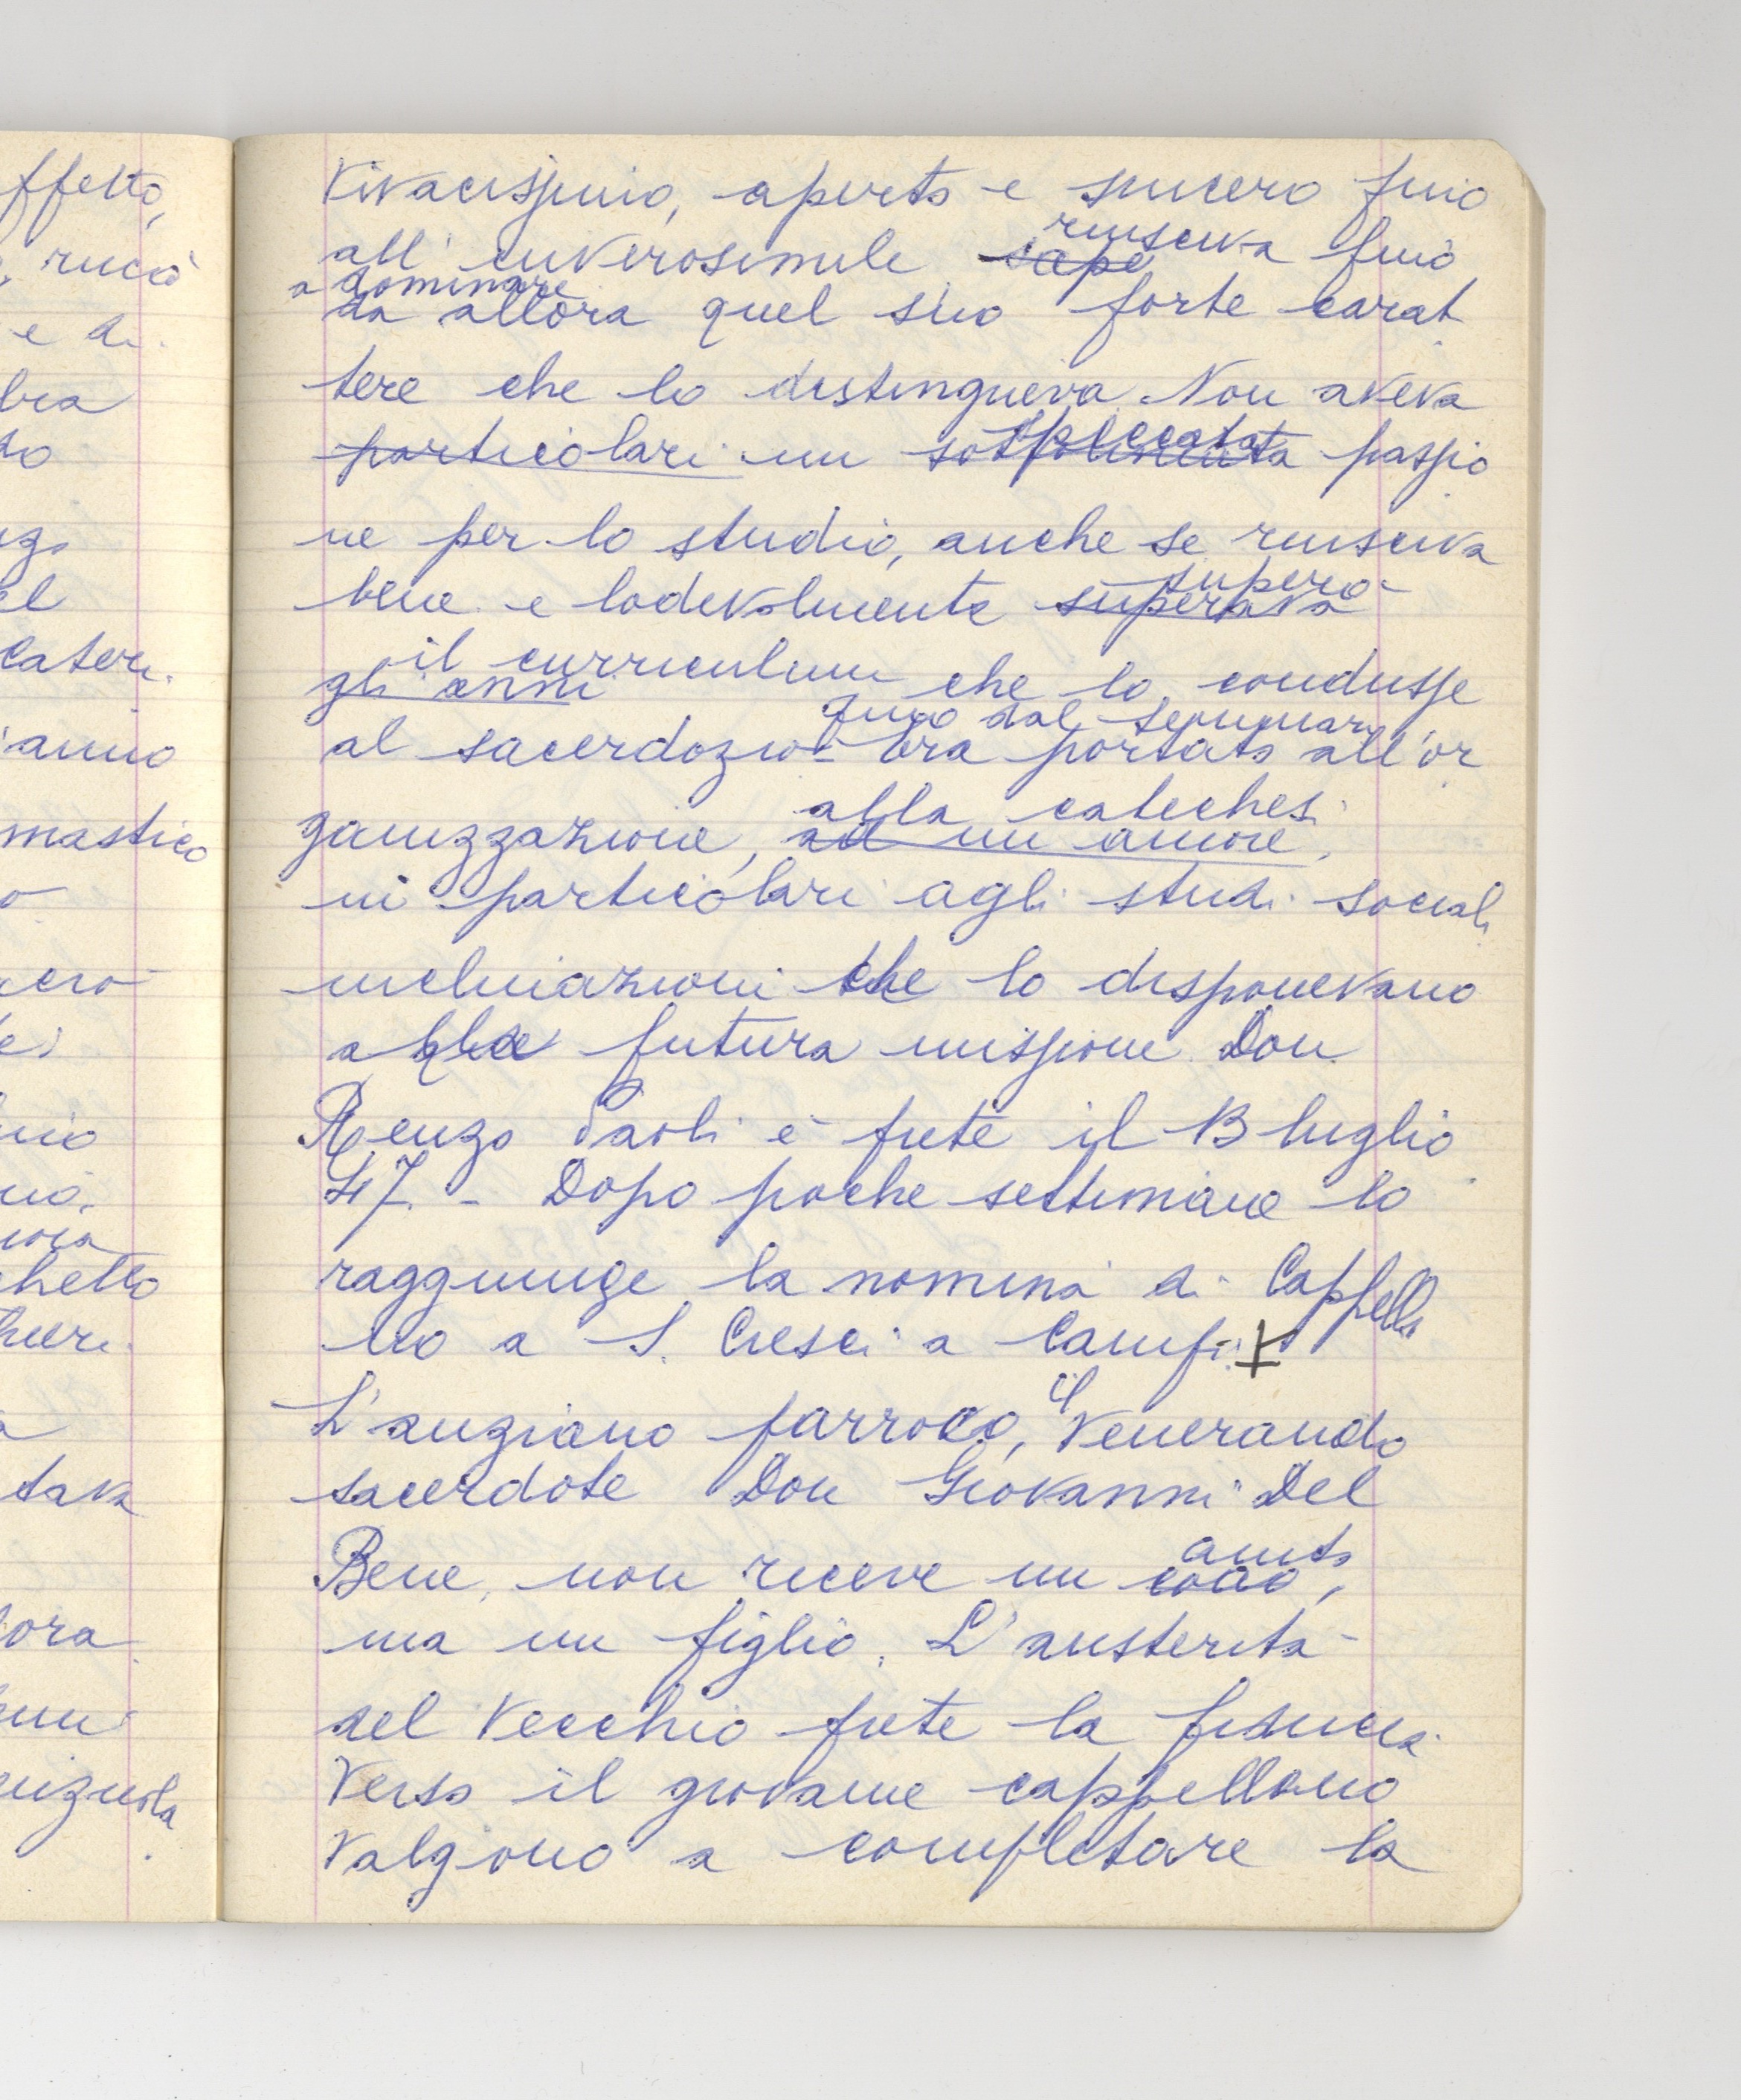 ffetto,
riuscì
e di
bra
to
el
cateri
anno
mastico
o
nio
hetto
tava
ora
Vivacissimo, aperto e sincero fino
all'inverosimile sape riusciva fino
a dominare
da allora quel suo forte carat
tere che lo distingueva. Non aveva
particolari un sottolineata spiccata passio
ne per lo studio, anche se riusciva
bene e lodevolmente superava superò
gli anni il curriculum che lo condusse
al sacerdozio - fino dal seminario
Era portato all'or
ganizzazione, ad un amore, alla catechesi
in particolari agli studi sociali
inclinazioni che lo disponevano
a futura missione. Don
Renzo Paoli è prete il 13 luglio
47. - Dopo poche settimane lo
raggiunge la nomina di Cappella
no a S. Cresci a Campi
L'anziano parroco, il Venerando
sacerdote Don Giovanni Del
Bene, non riceve un aiuto,
ma un figlio. L'austerità
del Vecchio prete la fiducia
Verso il giovane cappellano
Valgono a completare la